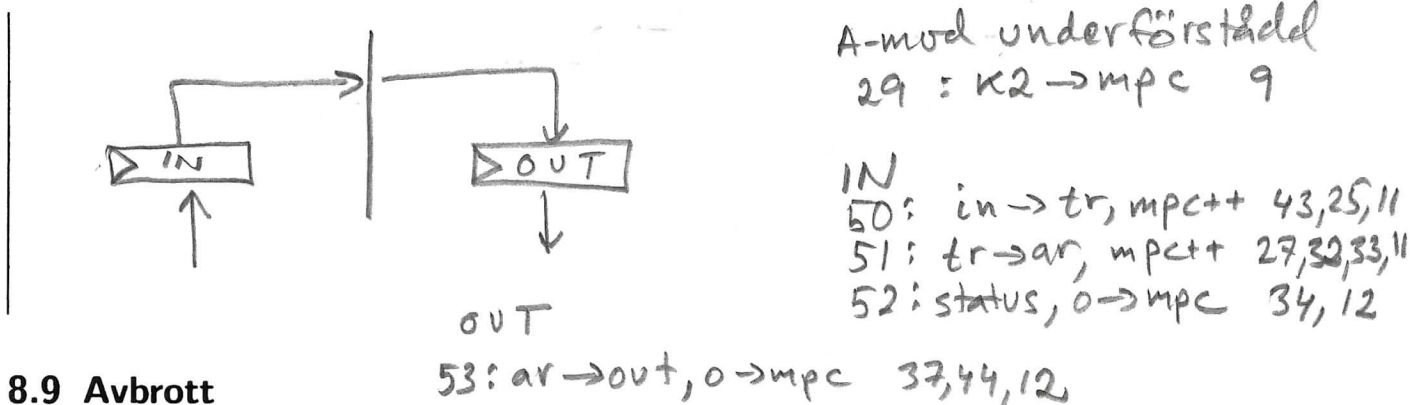 A-mod underförstådd
29 : K2→mpc 9
IN
OUT
IN
50: in→tr, mpc++ 43,25,11
51: tr→ar, mpc++ 27,32,33,11
52: status, 0→mpc 34, 12
OUT
53: ar→out, 0→mpc 37,44,12
8.9 Avbrott